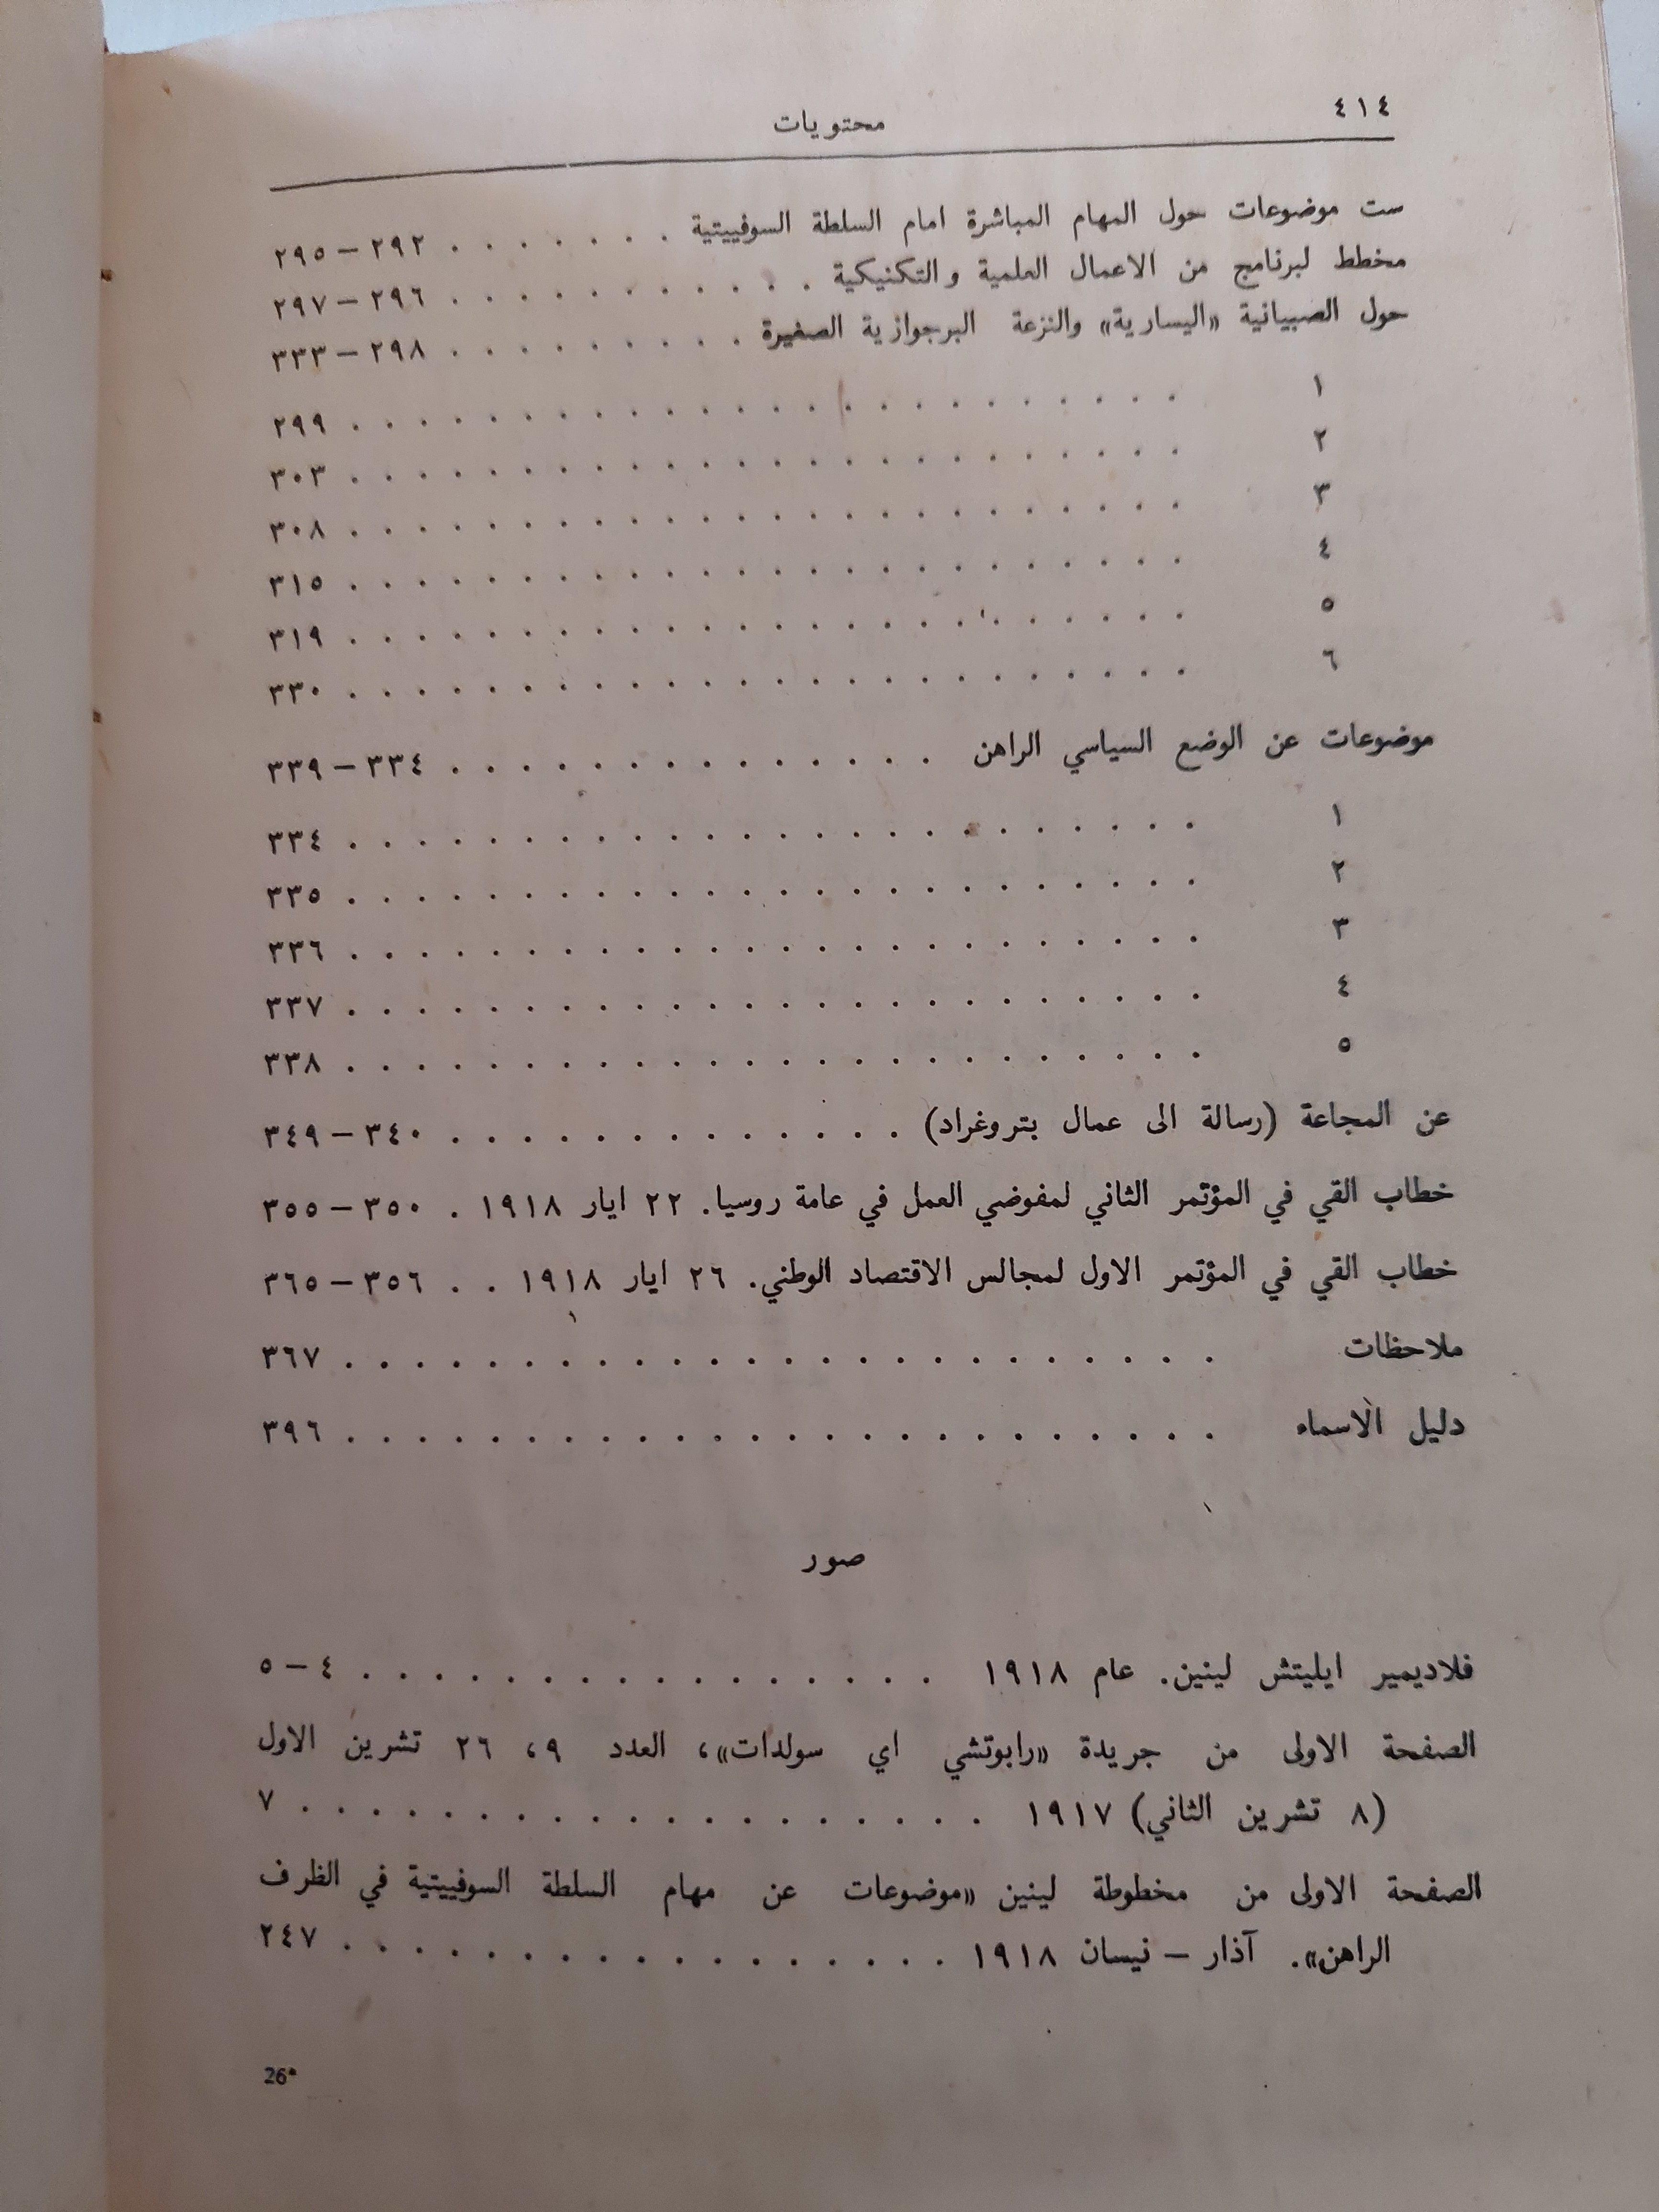 ٤١٤
محتويات
ست موضوعات حول المهام المباشرة امام السلطة السوفييتية . . . . . . . ٢٩٢ – ٢٩٥
مخطط لبرنامج من الاعمال العلمية والتكنيكية . . . . . . . . . . . ٢٩٦ – ٢٩٧
حول الصبيانية «اليسارية» والنزعة البرجوازية الصغيرة . . . . . . . . . ٢٩٨ – ٣٣٣
١ . . . . . . . . . . . . . . . . . . . . . . . . ٢٩٩
٢ . . . . . . . . . . . . . . . . . . . . . . . . ٣٠٣
٣ . . . . . . . . . . . . . . . . . . . . . . . . ٣٠٨
٤ . . . . . . . . . . . . . . . . . . . . . . . . ٣١٥
٥ . . . . . . . . . . . . . . . . . . . . . . . . ٣١٩
٦ . . . . . . . . . . . . . . . . . . . . . . . . ٣٣٠
موضوعات عن الوضع السياسي الراهن . . . . . . . . . . . . . . ٣٣٤ – ٣٣٩
١ . . . . . . . . . . . . . . . . . . . . . . . . ٣٣٤
٢ . . . . . . . . . . . . . . . . . . . . . . . . ٣٣٥
٣ . . . . . . . . . . . . . . . . . . . . . . . . ٣٣٦
٤ . . . . . . . . . . . . . . . . . . . . . . . . ٣٣٧
٥ . . . . . . . . . . . . . . . . . . . . . . . . ٣٣٨
عن المجاعة (رسالة الى عمال بتروغراد) . . . . . . . . . . . . . ٣٤٠ – ٣٤٩
خطاب القي في المؤتمر الثاني لمفوضي العمل في عامة روسيا. ٢٢ ايار ١٩١٨ . ٣٥٠ – ٣٥٥
خطاب القي في المؤتمر الاول لمجالس الاقتصاد الوطني. ٢٦ ايار ١٩١٨ . . ٣٥٦ – ٣٦٥
ملاحظات . . . . . . . . . . . . . . . . . . . . . . . . . ٣٦٧
دليل الاسماء . . . . . . . . . . . . . . . . . . . . . . . . . ٣٩٦
صور
فلاديمير ايليتش لينين. عام ١٩١٨ . . . . . . . . . . . . . . . . . ٤ – ٥
الصفحة الاولى من جريدة «رابوتشي اي سولدات»، العدد ٩، ٢٦ تشرين الاول
(٨ تشرين الثاني) ١٩١٧ . . . . . . . . . . . . . . . . . . . . ٧
الصفحة الاولى من مخطوطة لينين «موضوعات عن مهام السلطة السوفييتية في الظرف
الراهن». آذار – نيسان ١٩١٨ . . . . . . . . . . . . . . . . . ٢٤٧
26*